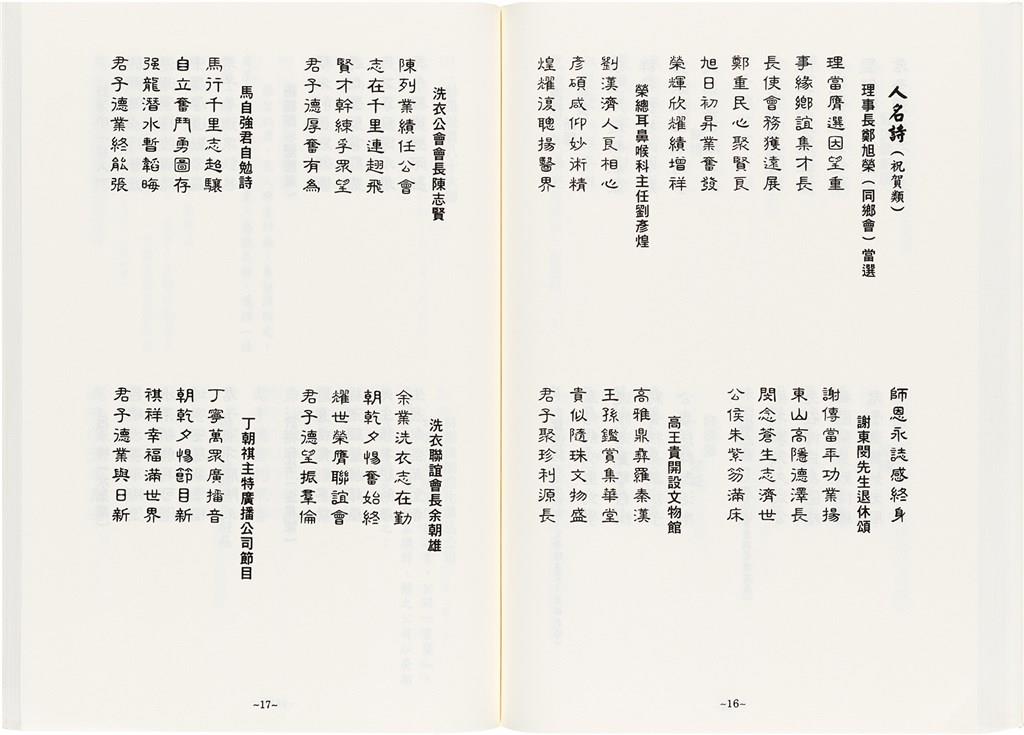 人名詩（祝賀類）
理事長鄭旭榮（同鄉會）當選
理當膺選因望重
事緣鄉誼集才長
長使會務獲遠展
鄭重民心聚賢良
旭日初昇業奮發
榮輝欣耀績增祥
榮總耳鼻喉科主任劉彥煌
劉漢濟人良相心
彥碩咸仰妙術精
煌耀復聰揚醫界
師恩永誌感終身
謝東閔先生退休頌
謝傅當年功業揚
東山高隱德澤長
閔念蒼生志濟世
公侯朱紫笏滿床
高王貴開設文物館
高雅鼎彝羅秦漢
王孫鑑賞集華堂
貴似隨珠文物盛
君子聚珍利源長
~16~
洗衣公會會長陳志賢
陳列業績任公會
志在千里連翅飛
賢才幹練孚眾望
君子德厚奮有為
馬自強君自勉詩
馬行千里志超驤
自立奮鬥勇圖存
强龍潛水暫韜晦
君子德業終能張
洗衣聯誼會長余朝雄
余業洗衣志在勤
朝乾夕惕奮始終
耀世榮膺聯誼會
君子德望振羣倫
丁朝祺主特廣播公司節目
丁寧萬眾廣播音
朝乾夕惕節目新
祺祥幸福滿世界
君子德業與日新
~17~